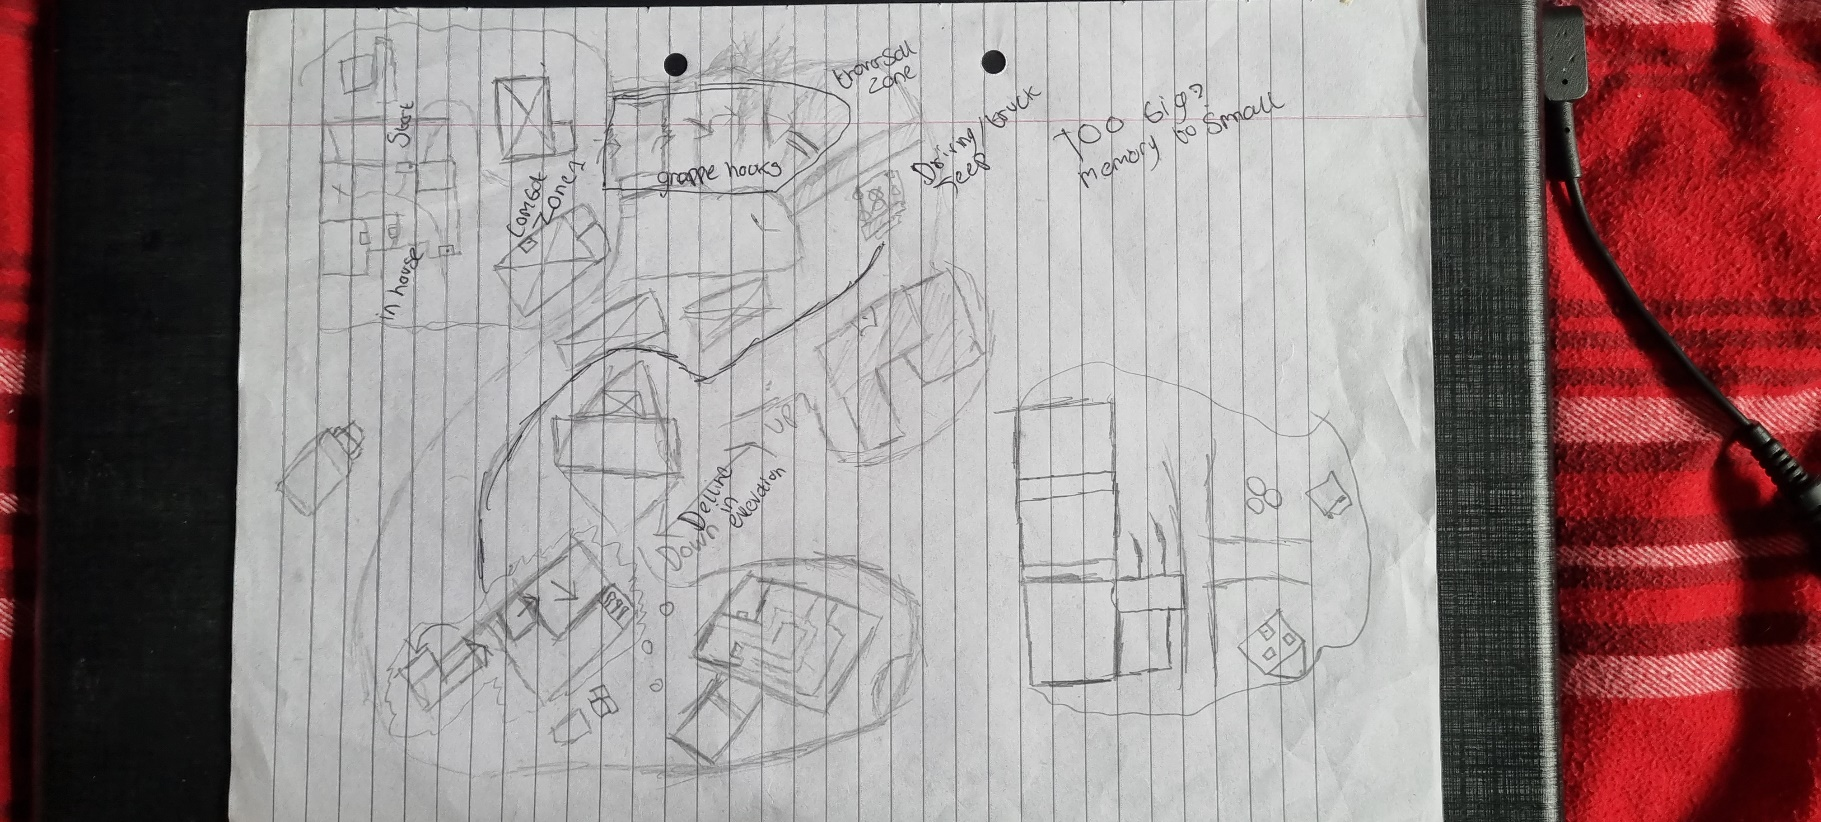 Start
in house
Combat
Zone 1
grappe hooks
traversall
zone
Driving/truck
Jeep
Too big?
memory to small
up
Down
in
elevation